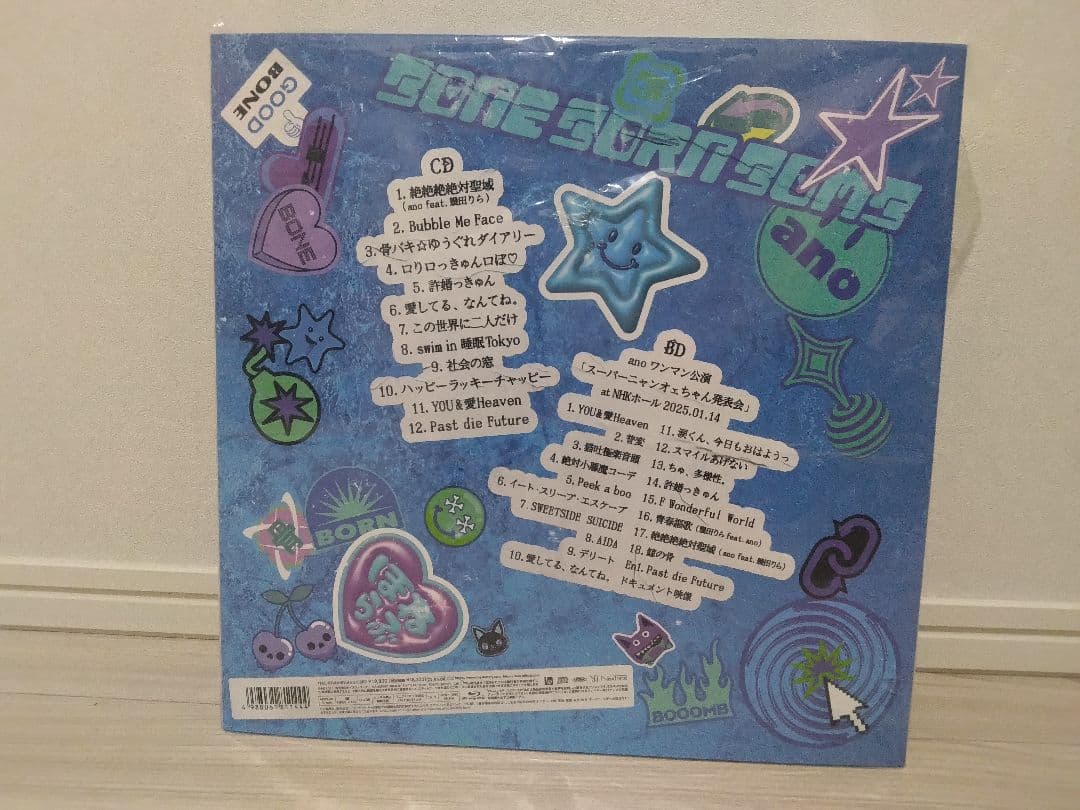 GOOD
BONE
BONE BORN BOMB
BONE
ano
CD
1. 絶絶絶絶対聖域
(ano feat. 幾田りら)
2. Bubble Me Face
3. 骨バキ☆ゆうぐれダイアリー
4. ロりロっきゅんロぼ♡
5. 許婚っきゅん
6. 愛してる、なんてね。
7. この世界に二人だけ
8. swim in 睡眠Tokyo
9. 社会の窓
10. ハッピーラッキーチャッピー
11. YOU&愛Heaven
12. Past die Future
BD
ano ワンマン公演
「スーパーニャンオェちゃん発表会」
at NHKホール 2025.01.14
1. YOU&愛Heaven
2. 普変
3. 猫吐極楽音頭
4. 絶対小悪魔コーデ
5. Peek a boo
6. イート・スリープ・エスケープ
7. SWEETSIDE SUICIDE
8. AIDA
9. デリート
10. 愛してる、なんてね。
11. 涙くん、今日もおはようっ
12. スマイルあげない
13. ちゅ、多様性。
14. 許婚っきゅん
15. F Wonderful World
16. 青春謳歌 (幾田りら feat. ano)
17. 絶絶絶絶対聖域 (ano feat. 幾田りら)
18. 鯨の骨
En1. Past die Future
ドキュメント映像
BORN
BOOOMB